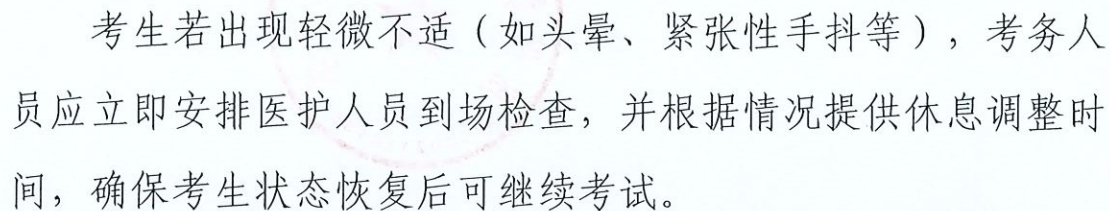 考生若出现轻微不适（如头晕、紧张性手抖等），考务人
员应立即安排医护人员到场检查，并根据情况提供休息调整时
间，确保考生状态恢复后可继续考试。